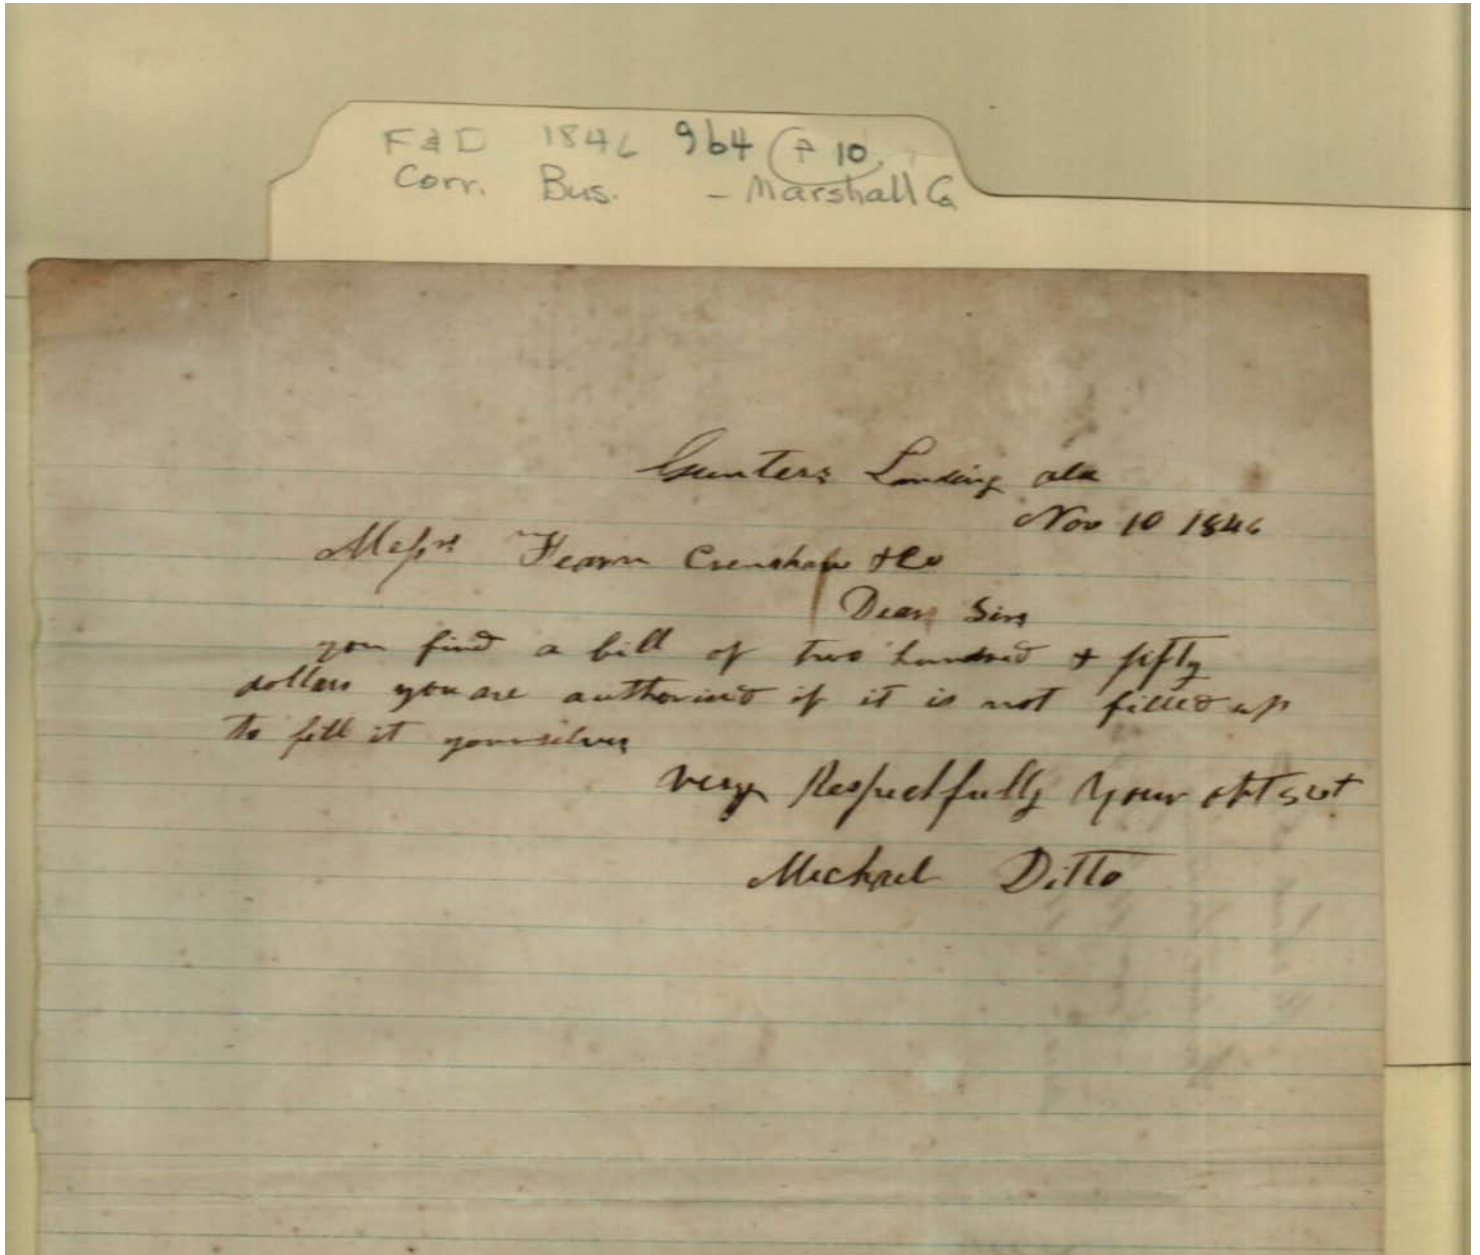 F & D 1846 964 (F 10)
Corr. Bus. - Marshall Co
Gunters Landing Ala
Nov 10 1846
Messrs Fearn Crenshaw & Co
Dear Sirs
you find a bill of two hundred & fifty
dollars you are authorised if it is not filled up
to fill it yourselves
very Respectfully your obt svt
Michael Ditto